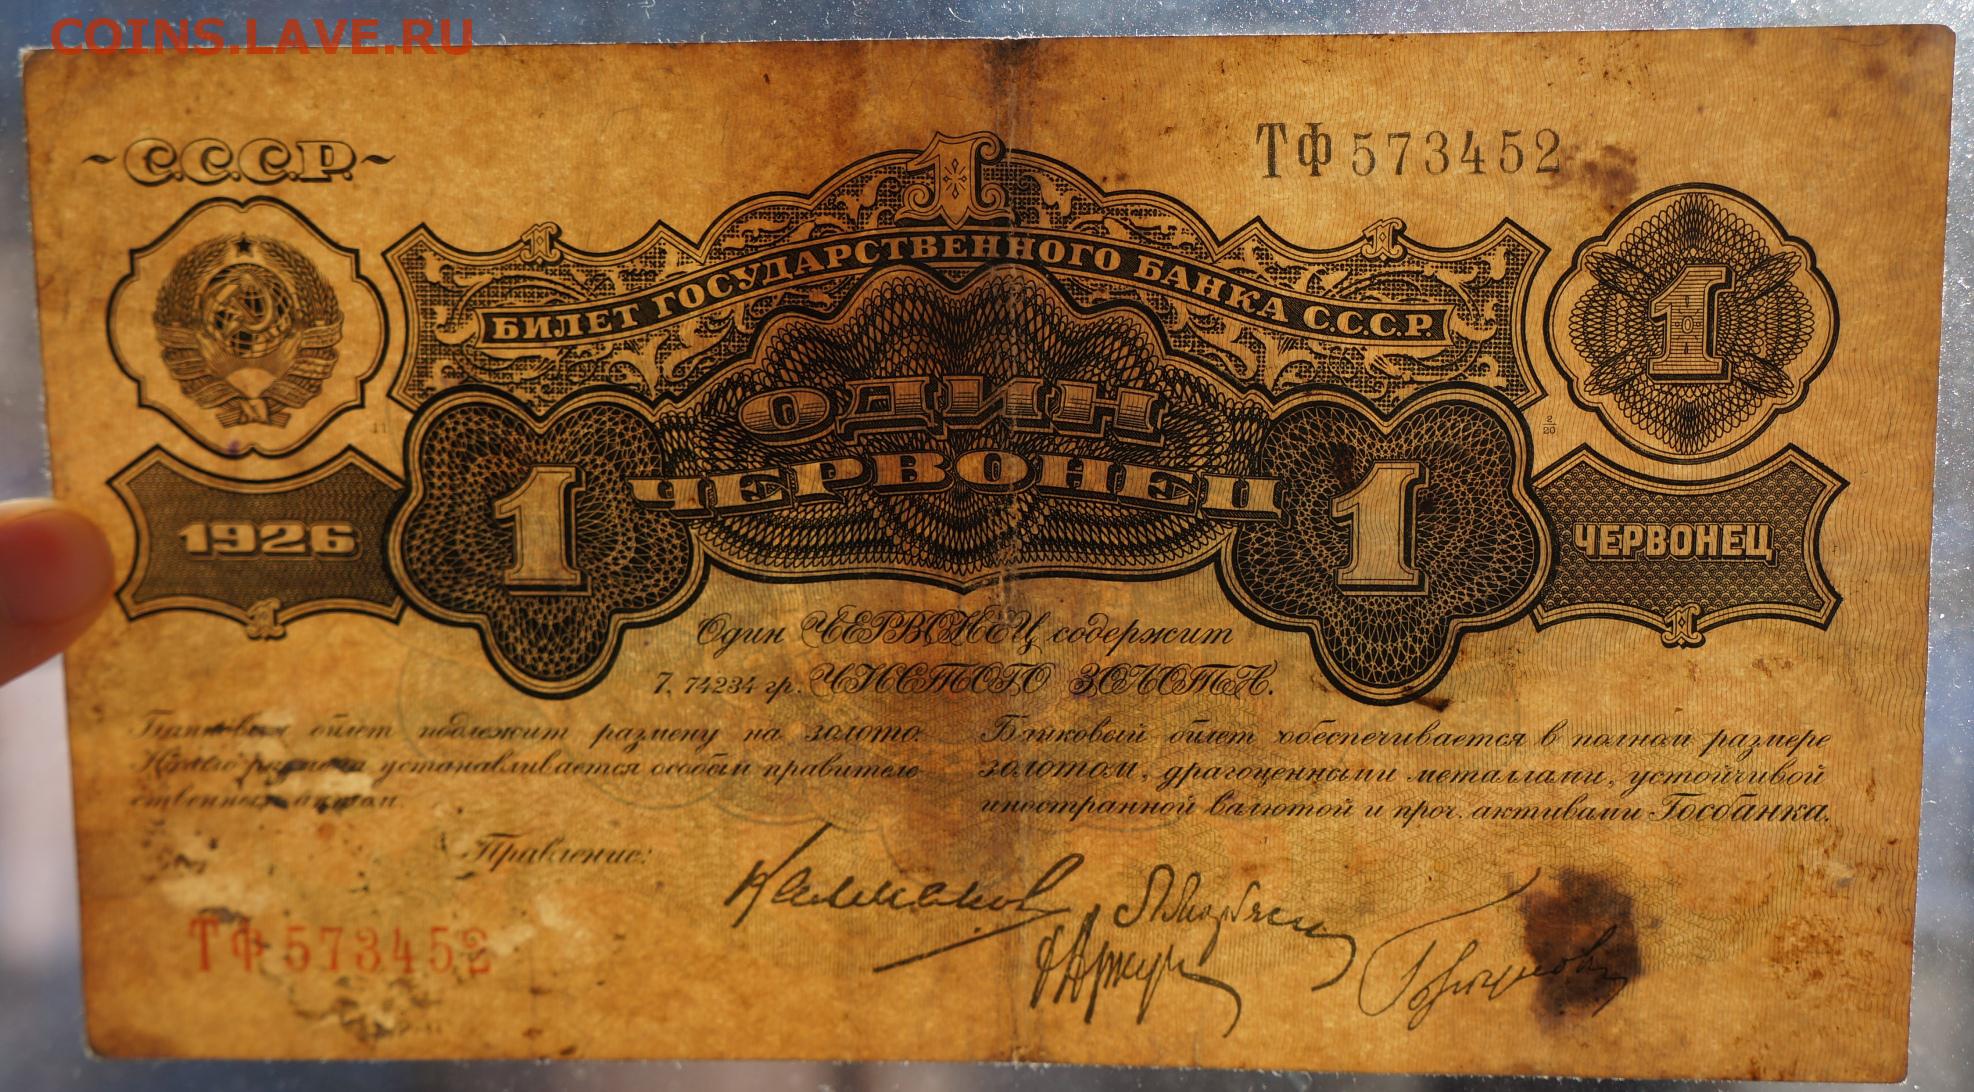 COINS.LAVE.RU
С.С.С.Р.
ТФ 573452
1
БИЛЕТ ГОСУДАРСТВЕННОГО БАНКА С.С.С.Р.
1 1
1
ОДИН
ЧЕРВОНЕЦ
1 1
11
2/20
1926
ЧЕРВОНЕЦ
1 1
Один ЧЕРВОНЕЦ содержит
7, 74234 гр. ЧИСТОГО ЗОЛОТА.
Банковый билет подлежит размену на золото.
размена устанавливается особым правитель-
ственным актом.
Банковый билет обеспечивается в полном размере
золотом, драгоценными металлами, устойчивой
иностранной валютой и проч. активами Госбанка.
Правление:
Калманов
ТФ 573452